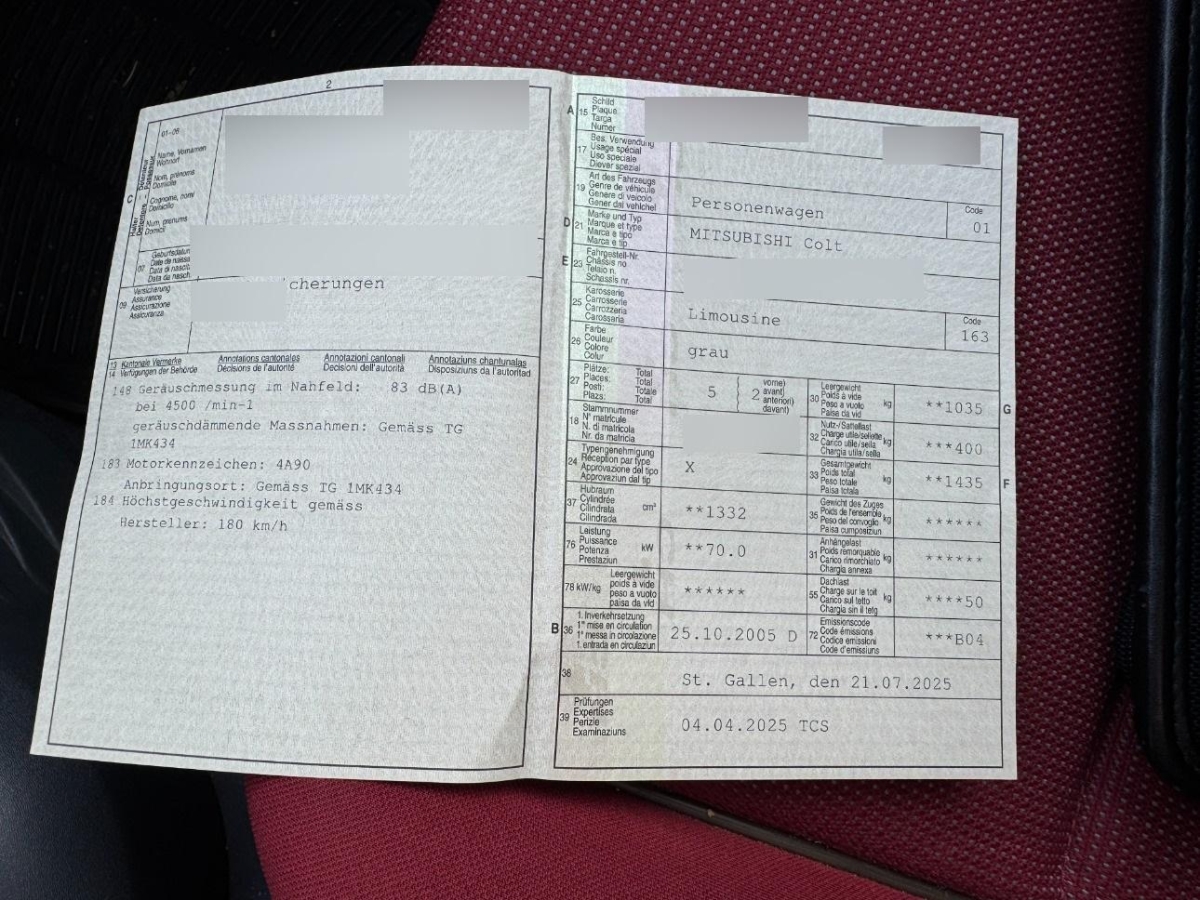 2
01-06
C
Name, Vornamen
Wohnort
Nom, prénoms
Domicile
Cognome, nomi
Domicilio
Num, prenums
Domicil
07
Geburtsdatum
Date de naiss
Data di nascit
Data da nasch.
09
Versicherung
Assurance
Assicurazione
Assicuranza
cherungen
13 Kantonale Vermerke Annotations cantonales Annotazioni cantonali Annotaziuns chantunalas
14 Verfügungen der Behörde Décisions de l'autorité Decisioni dell'autorità Disposiziuns da l'autoritad
148 Geräuschmessung im Nahfeld: 83 dB(A)
bei 4500 /min-1
geräuschdämmende Massnahmen: Gemäss TG
1MK434
183 Motorkennzeichen: 4A90
Anbringungsort: Gemäss TG 1MK434
184 Höchstgeschwindigkeit gemäss
Hersteller: 180 km/h
A 15
Schild
Plaque
Targa
Numer
17
Bes. Verwendung
Usage spécial
Uso speciale
Diever spezial
19
Art des Fahrzeugs
Genre de véhicule
Genere di veicolo
Gener dal vehichel
Personenwagen
Code
01
D 21
Marke und Typ
Marque et type
Marca e tipo
Marca e tip
MITSUBISHI Colt
E 23
Fahrgestell-Nr.
Châssis no
Telaio n.
Schassis nr.
25
Karosserie
Carrosserie
Carrozzeria
Carossaria
Limousine
Code
163
26
Farbe
Couleur
Colore
Colur
grau
27
Plätze: Total
Places: Total
Posti: Totale
Plazs: Total
5
2
vorne)
avant)
anteriori)
davant)
18
Stammnummer
N° matricule
N. di matricola
Nr. da matricla
24
Typengenehmigung
Réception par type
Approvazione del tipo
Approvaziun dal tip
X
37
Hubraum
Cylindrée
Cilindrata
Cilindrada
cm³
**1332
76
Leistung
Puissance
Potenza
Prestaziun
kW
**70.0
78 kW/kg
Leergewicht
poids à vide
peso a vuoto
paisa da vid
******
B 36
1. Inverkehrsetzung
1re mise en circulation
1a messa in circolazione
1. entrada en circulaziun
25.10.2005 D
30
Leergewicht
Poids à vide
Peso a vuoto
Paisa da vid
kg
**1035
G
32
Nutz-/Sattellast
Charge utile/sellette
Carico utile/sella
Chargia utila/sella
kg
***400
33
Gesamtgewicht
Poids total
Peso totale
Paisa totala
kg
**1435
F
35
Gewicht des Zuges
Poids de l'ensemble
Peso del convoglio
Paisa cumposiziun
kg
******
31
Anhängelast
Poids remorquable
Carico rimorchiato
Chargia annexa
kg
******
55
Dachlast
Charge sur le toit
Carico sul tetto
Chargia sin il tetg
kg
****50
72
Emissionscode
Code émissions
Codice emissioni
Code d'emissiuns
***B04
38
St. Gallen, den 21.07.2025
39
Prüfungen
Expertises
Perizie
Examinaziuns
04.04.2025 TCS